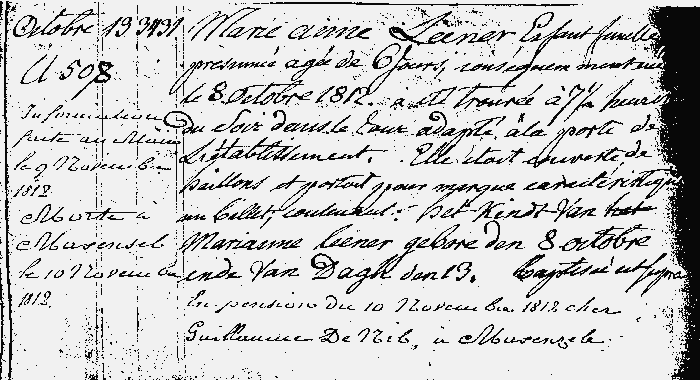 Octobre 13 3431
U 508
Information
faite au Maire
le 9 Novembre
1812
Morte à
Mazensel
le 10 Novembre
1812.
Marie anne Leener Enfant femelle
présumé agée de 6 jours, conséquemment née
le 8 Octobre 1812. a été trouvée à 7 1/2 heures
du Soir dans le Tour adapté à la porte de
L'établissement. Elle étoit couverte de
haillons et portoit pour marque caractéristique
un billet, contenant: Het Kindt Van het
Marianne leener gebore den 8 octobre
ende Van Dagh den 13. Baptisé ut supra
En pension du 10 Novembre 1812 chez
Guillaume De Nil, à Mazenzele